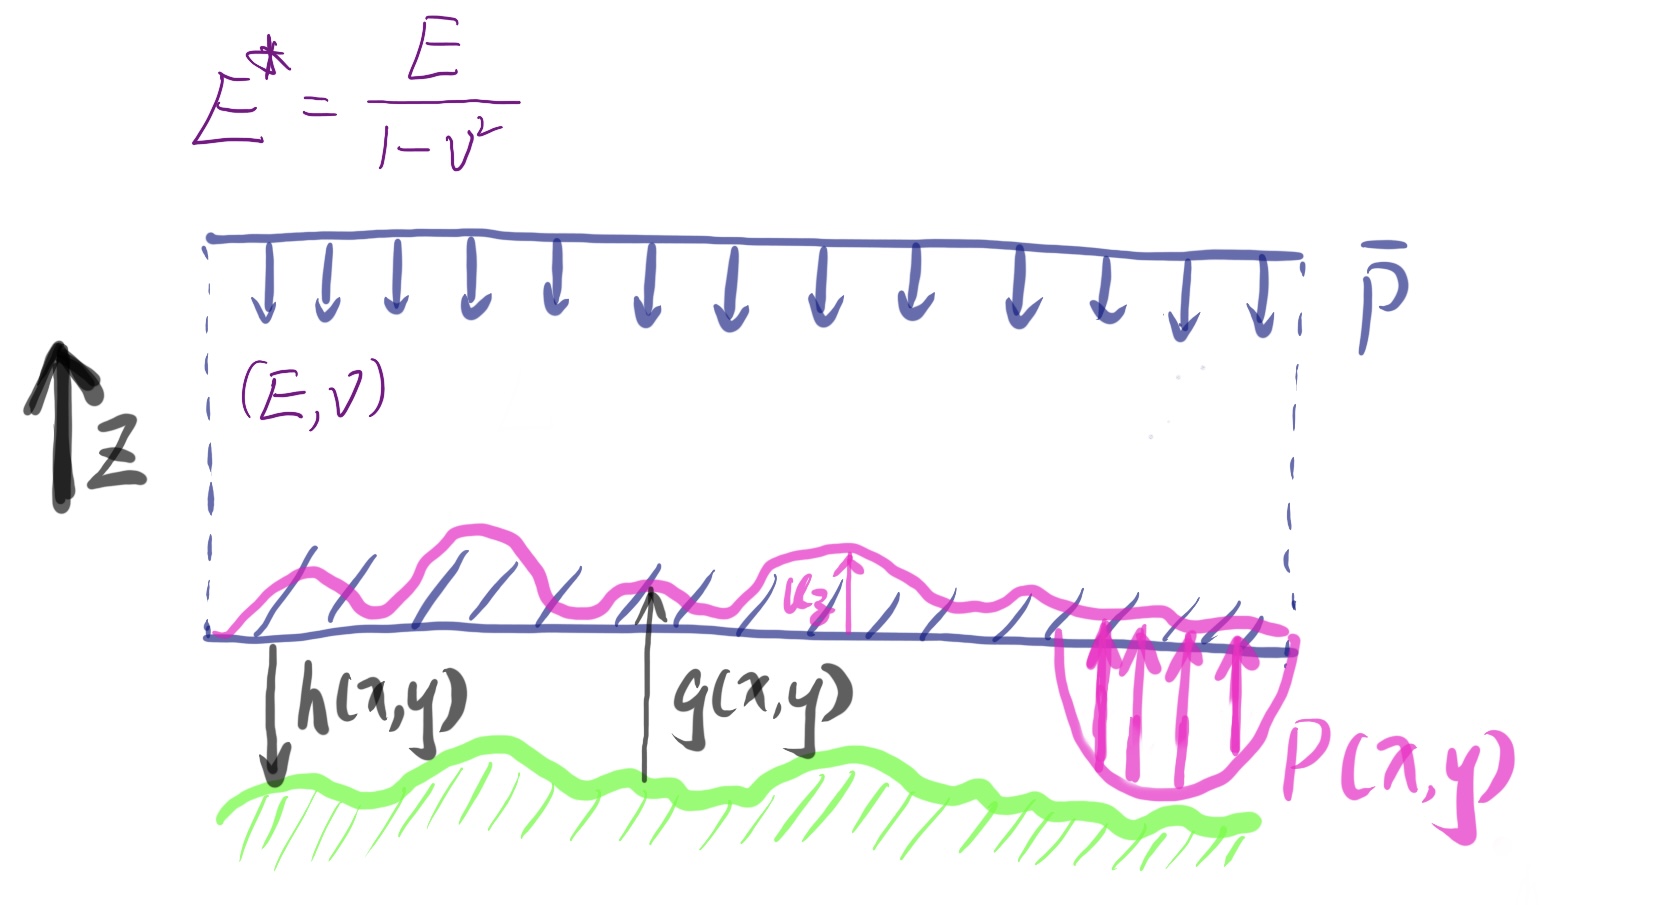 E* = E / (1-ν²)
p̄
(E, ν)
z
u_z
h(x,y)
g(x,y)
P(x,y)